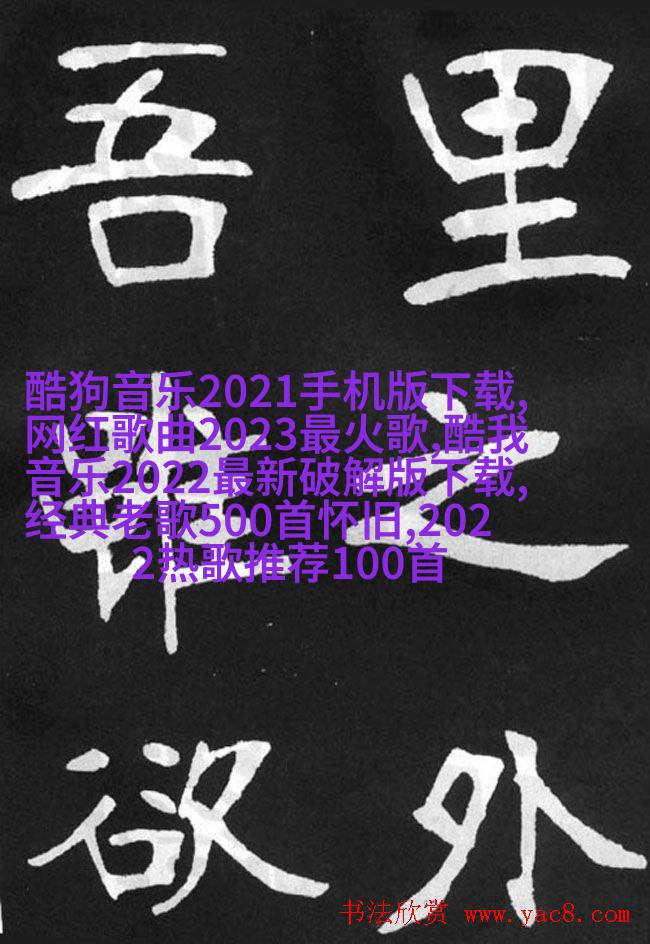 里之外
吾欲
酷狗音乐2021手机版下载,
网红歌曲2023最火歌,酷我
音乐2022最新破解版下载,
经典老歌500首怀旧,202
2热歌推荐100首
书法欣赏 www.yac8.com